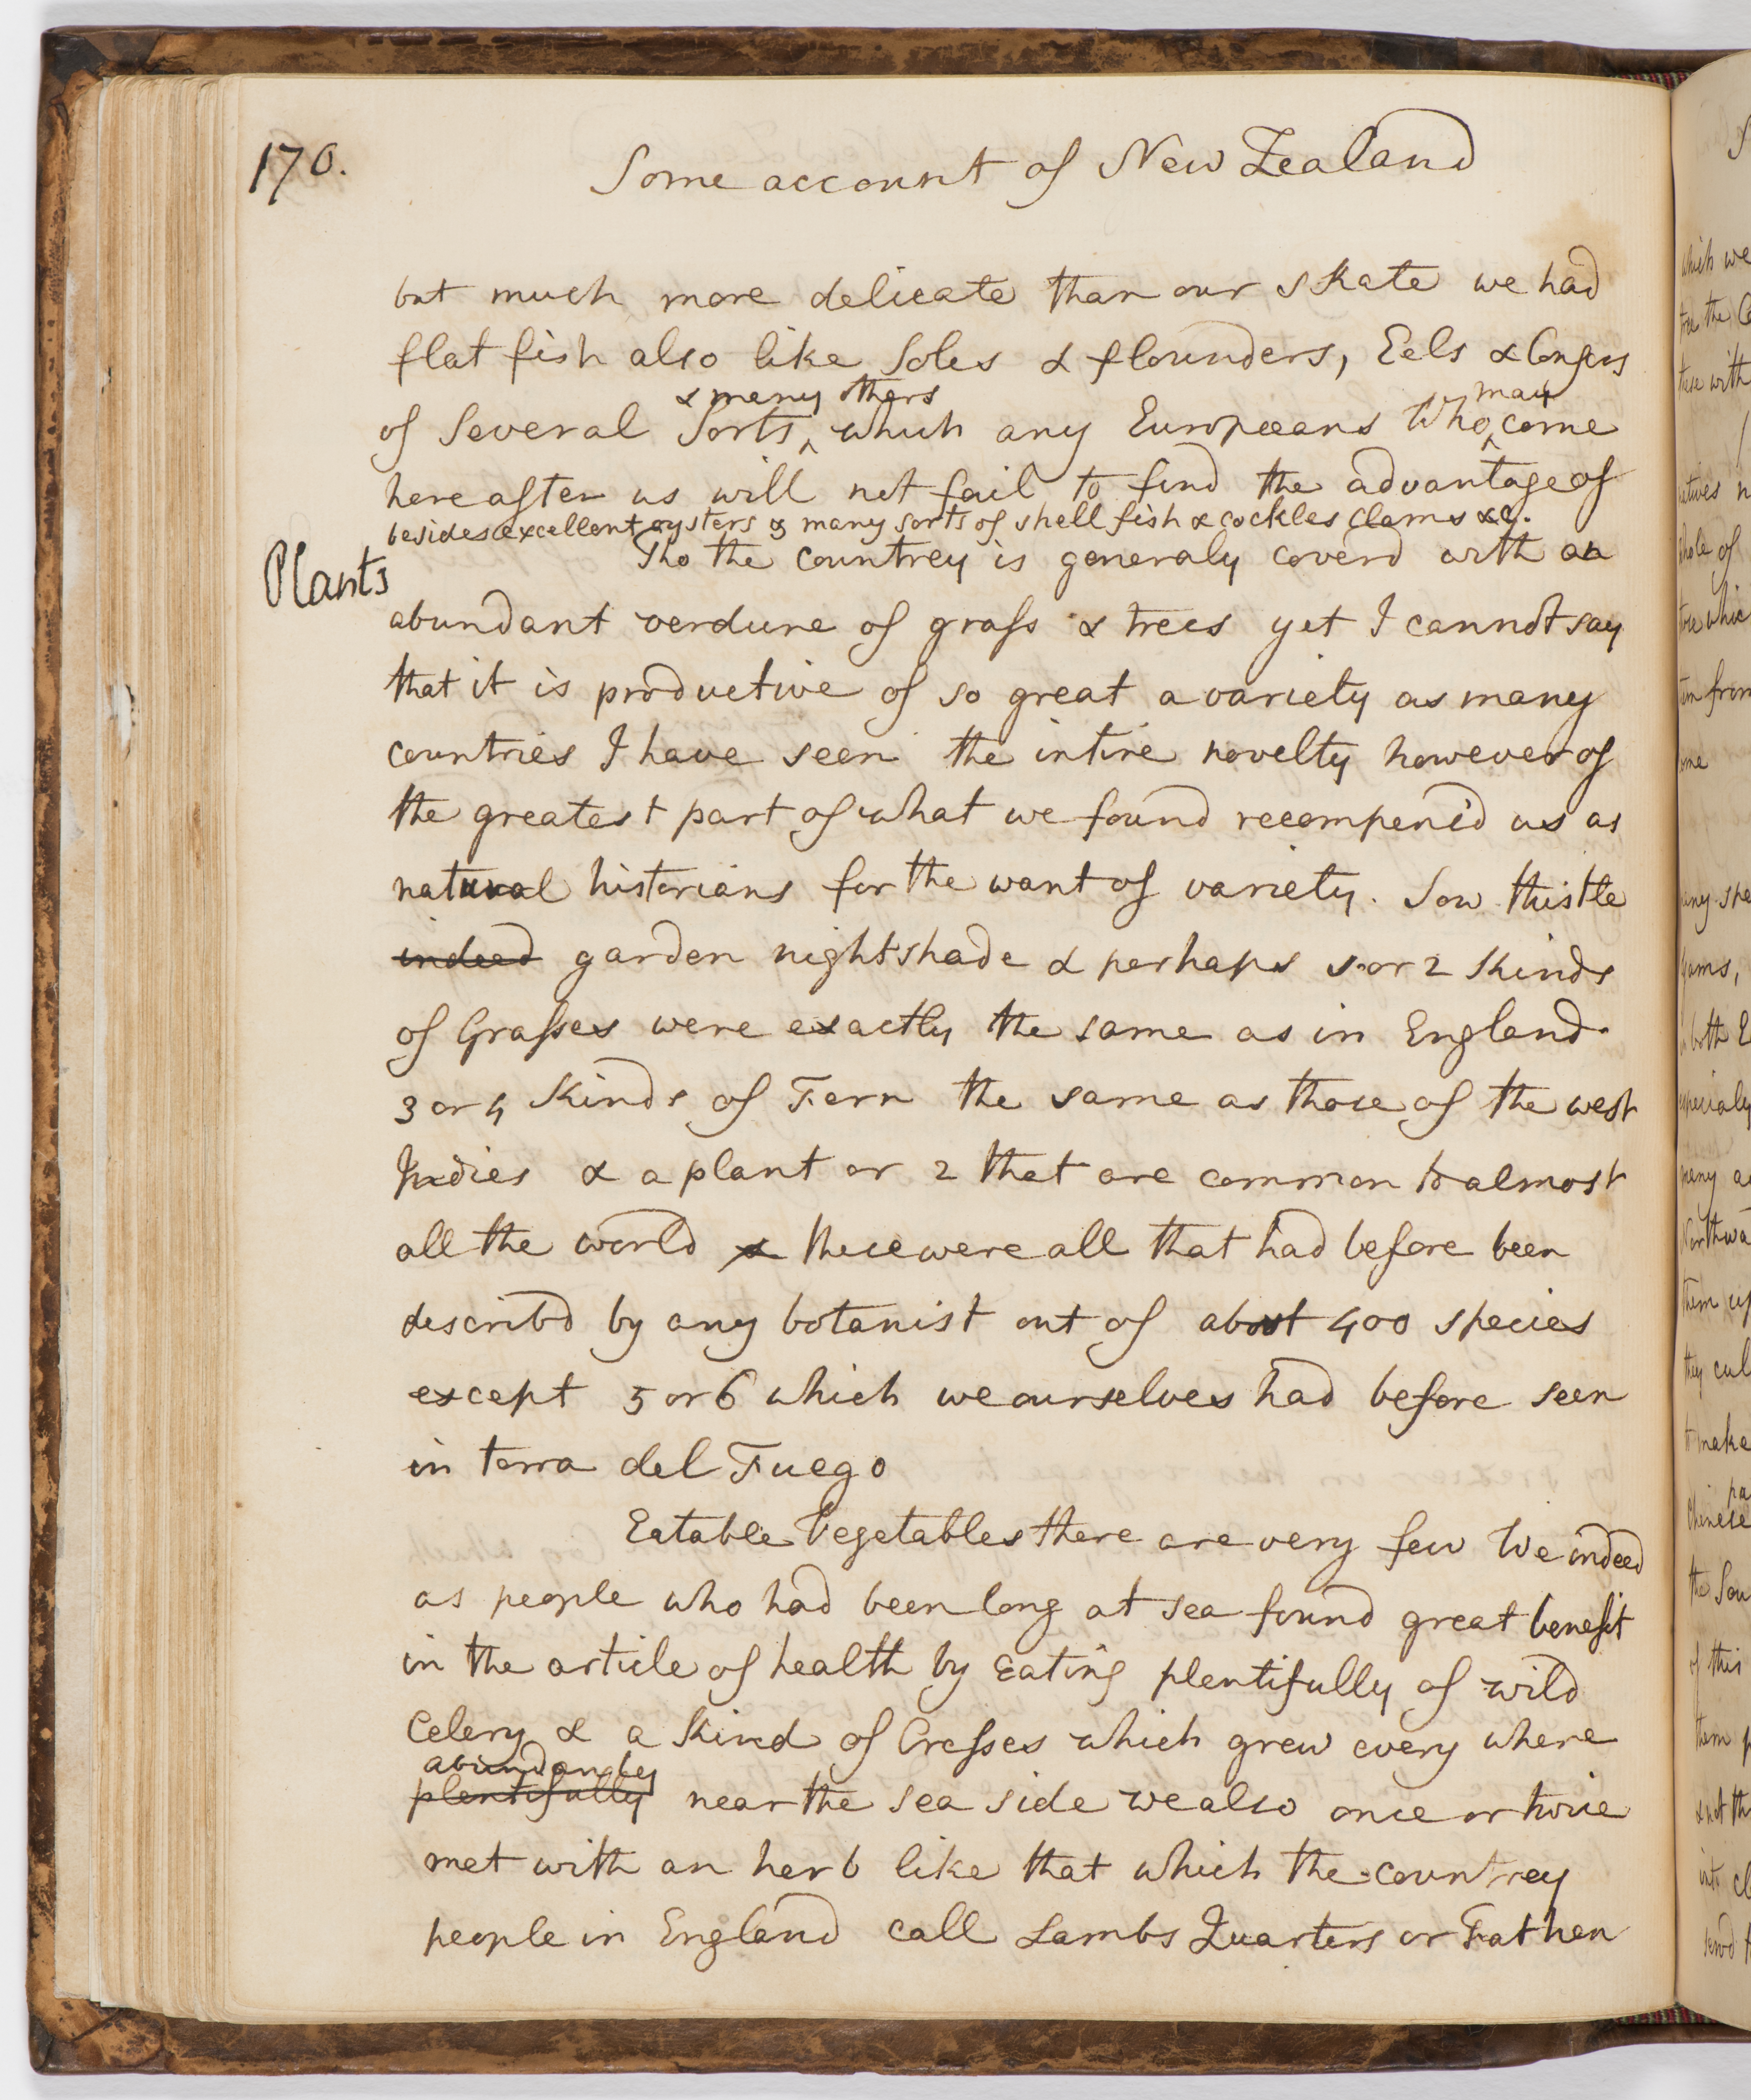 170.
Some account of New Zealand
but much more delicate than our skate we had
flat fish also like Soles & flounders, Eels & Congers
& many others may
of Several Sorts ‸ which any Europæans Who ‸ come
here after us will not fail to find the advantage of
besides excellent oysters & many sorts of shell fish & cockles clams &c.
Plants
Tho the Countrey is generaly coverd with an
abundant verdure of grass & trees yet I cannot say
that it is productive of so great a variety as many
countries I have seen the intire novelty however of
the greatest part of what we found recompens'd us as
natural historians for the want of variety. Sow thistle
indeed garden nightshade & perhaps 1 or 2 Kinds
of Grasses were exactly the same as in England
3 or 4 Kinds of Fern the same as those of the west
Indies & a plant or 2 that are common to almost
all the world & these were all that had before been
describd by any botanist out of about 400 species
except 5 or 6 which we ourselves had before seen
in terra del Fuego
Eatable Vegetables there are very few We indeed
as people who had been long at sea found great benefit
in the article of health by Eating plentifully of wild
Celery & a Kind of Cresses which grew every where
abundantly
plentifully near the sea side we also once or twice
met with an herb like that which the countrey
people in England call Lambs Quarters or Fat hen